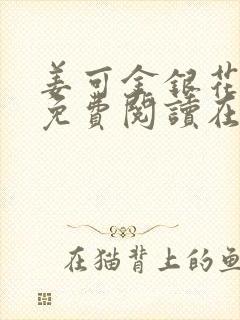 姜可金銀花
免費閱讀在
在猫背上的鱼